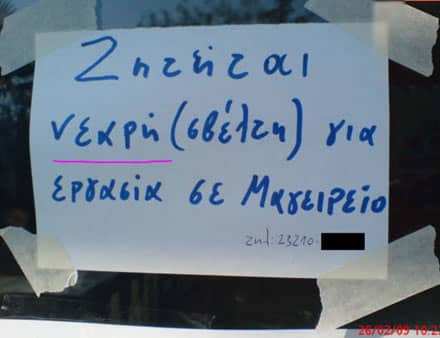 Ζητείται
νεκρή (σβέλτη) για
εργασία σε Μαγειρείο
τηλ: 23210-
26/02/09 10:2